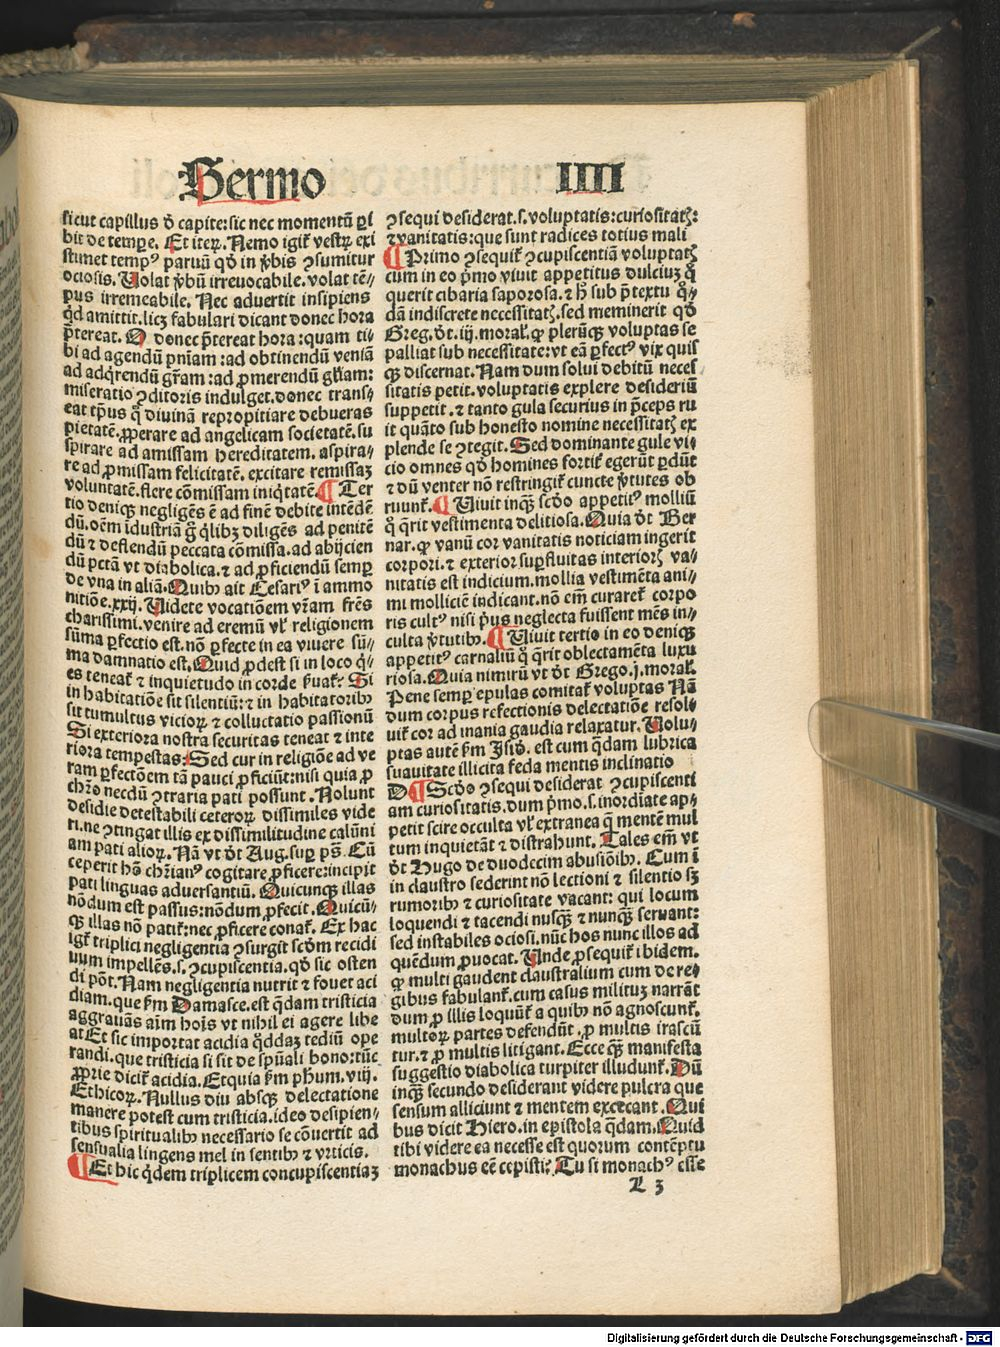 Sermo IIII
sicut capillus ď capite: sic nec momentū ꝑi
bit de tempe. Et iteꝝ. Nemo igiť vestꝝ exi
stimet tempꝰ paruū qď in v̄bis ꝯsumitur
ociosis. Uolat v̄bū irreuocabile. volat tē⸗
pus irremeabile. Nec aduertit insipiens
qd̄ amittit. licꝫ fabulari dicant donec hora
p̄tereat. O donec p̄tereat hora: quam ti⸗
bi ad agendū pn̄iam: ad obtinendū veniā
ad adq̄rendū gr̄am: ad ꝓmerendū gl̄iam:
miseratio ꝯditoris indulget. donec trans⸗
eat tp̄us q̊ diuinā repropitiare debueras
pietatē. ꝓperare ad angelicam societatē. su
spirare ad amissam hereditatem. aspira⸗
re ad ꝓmissam felicitatē. excitare remissaꝫ
voluntatē. flere cōmissam iniq̇tatē. ¶ Ter
tio deniqꝫ negligēs ē ad finē debite intēdē
dū. oēm īdustriā ḡ q̇libꝫ diligēs ad penitē
dū ⁊ deflendū peccata cōmissa. ad abijcien
dū pctā vt diabolica. ⁊ ad ꝓficiendū semꝑ
de vna in aliā. Quibꝰ ait Cesariꝰ ī ammo
nitiōe. xxij. Uidete vocatiōem vr̄am fr̄es
charissimi. venire ad eremū vl̕ religionem
sūma ꝑfectio est. nō ꝑfecte in ea viuere sū⸗
ma damnatio est. Quid ꝓdest si in loco q̇⸗
es teneať ⁊ inquietudo in corde ẜuať? Si
in habitatiōe sit silentiū: ⁊ in habitatoribꝰ
sit tumultus vicioꝝ ⁊ colluctatio passionū
Si exteriora nostra securitas teneat ⁊ inte
riora tempestas: Sed cur in religiōe ad ve
ram ꝑfectōem tā pauci ꝓficiūt: nisi quia ꝓ
chr̄o necdū ꝯtraria pati possunt. Nolunt
desidie detestabili ceteroꝝ dissimiles vide
ri. ne ꝯtingat illis ex dissimilitudine calūni
am pati alioꝝ. Nā vt dt̄ Aug. suꝑ ps̄. Cū
ceperit hō chr̄ianꝰ cogitare ꝓficere: incipit
pati linguas aduersantiū. Quicunqꝫ illas
nōdum est passus: nōdum ꝓfecit. Quicū⸗
qꝫ illas nō patiť: nec ꝓficere conať. Ex hac
igiť triplici negligentia ꝯsurgit scd̄m recidi
uum impellēs. s. ꝯcupiscentia. qď sic osten
di pōt. Nam negligentia nutrit ⁊ fouet aci
diam. que ẜm Damasce. est q̄dam tristicia
aggrauās aīm hoīs vt nihil ei agere libe
at Et sic importat acidia q̄ddaꝫ tediū ope
randi. que tristicia si sit de sp̄uali bono: tūc
ꝓprie diciť acidia. Et quia ẜm ph̄um. viij.
Ethicoꝝ. Nullus diu absqꝫ delectatione
manere potest cum tristicia. ideo desipien⸗
tibus spiritualibꝰ necessario se cōuertit ad
sensualia lingens mel in sentibꝰ ⁊ vrticis.
¶ Et hic q̇dem triplicem concupiscentiaꝫ
ꝯsequi desiderat. s. voluptatis: curiositatꝭ:
⁊ vanitatis: que sunt radices totius mali
¶ Primo ꝯsequiť ꝯcupiscentiā voluptatꝭ
cum in eo p̄mo viuit appetitus dulciuꝫ q̊
querit cibaria saporosa. ⁊ h̄ sub p̄textu q̇⸗
dā indiscrete necessitatꝭ. sed meminerit qď
Greg. dt̄. iij. moral̕. ꝙ plerūqꝫ voluptas se
palliat sub necessitate: vt eā ꝑfectꝰ vix quis
qꝫ discernat. Nam dum solui debitū neces
sitatis petit. voluptatis explere desideriū
suppetit. ⁊ tanto gula securius in p̄ceps ru
it quāto sub honesto nomine necessitatꝭ ex
plende se ꝯtegit. Sed dominante gule vi⸗
cio omnes qď homines fortiť egerūt ꝑdūt
⁊ dū venter nō restringiť cuncte v̄tutes ob
ruunť. ¶ Uiuit inqꝫ scd̄o appetitꝰ molliū
q̊ q̄rit vestimenta delitiosa. Quia dt̄ Ber
nar. ꝙ vanū cor vanitatis noticiam ingerit
corpori. ⁊ exterior suꝑfluitas interiorꝭ va⸗
nitatis est indicium. mollia vestimēta ani⸗
mi molliciē indicant. nō em̄ curareť corpo
ris cultꝰ nisi p̄us neglecta fuissent mēs in⸗
culta v̄tutibꝰ. ¶ Uiuit tertio in eo deniqꝫ
appetitꝰ carnaliū q̊ q̄rit oblectamēta luxu
riosa. Quia nimirū vt dt̄ Grego. j. moral̕.
Pene semꝑ epulas comitať voluptas Nā
dum corpus refectionis delectatiōe resol⸗
uiť cor ad inania gaudia relaxatur. Uolu⸗
ptas autē ẜm Isid. est cum q̄dam lubrica
suauitate illicita feda mentis inclinatio
D ¶ Scd̄o ꝯsequi desiderat ꝯcupiscenti
am curiositatis. dum p̄mo. s. inordiate ap⸗
petit scire occulta vl̕ extranea q̄ mentē mul
tum inquietāt ⁊ distrahunt. Tales em̄ vt
dt̄ Hugo de duodecim abusiōibꝰ. Cum ī
in claustro sederint nō lectioni ⁊ silentio sꝫ
rumoribꝰ ⁊ curiositate vacant: qui locum
loquendi ⁊ tacendi nusqꝫ ⁊ nunqꝫ seruant:
sed instabiles ociosi. nūc hos nunc illos ad
quēdum ꝓuocat. Unde ꝓsequiť ibidem.
ꝙ multi gaudent claustralium cum de re⸗
gibus fabulanť. cum casus milituꝫ narrāt
dum ꝓ illis loquūť a quibꝰ nō agnoscunť.
multoꝝ partes defendūt. ꝓ multis irasciū
tur. ⁊ ꝓ multis litigant. Ecce qꝫ manifesta
suggestio diabolica turpiter illudunť. Dū
inqꝫ secundo desiderant videre pulcra que
sensum alliciunt ⁊ mentem excecant. Qui
bus dicit Hiero. in epistola q̄dam. Quid
tibi videre ea necesse est quorum contēptu
monachus eē cepisti? Tu si monachꝰ esse
L 3
Digitalisierung gefördert durch die Deutsche Forschungsgemeinschaft - DFG